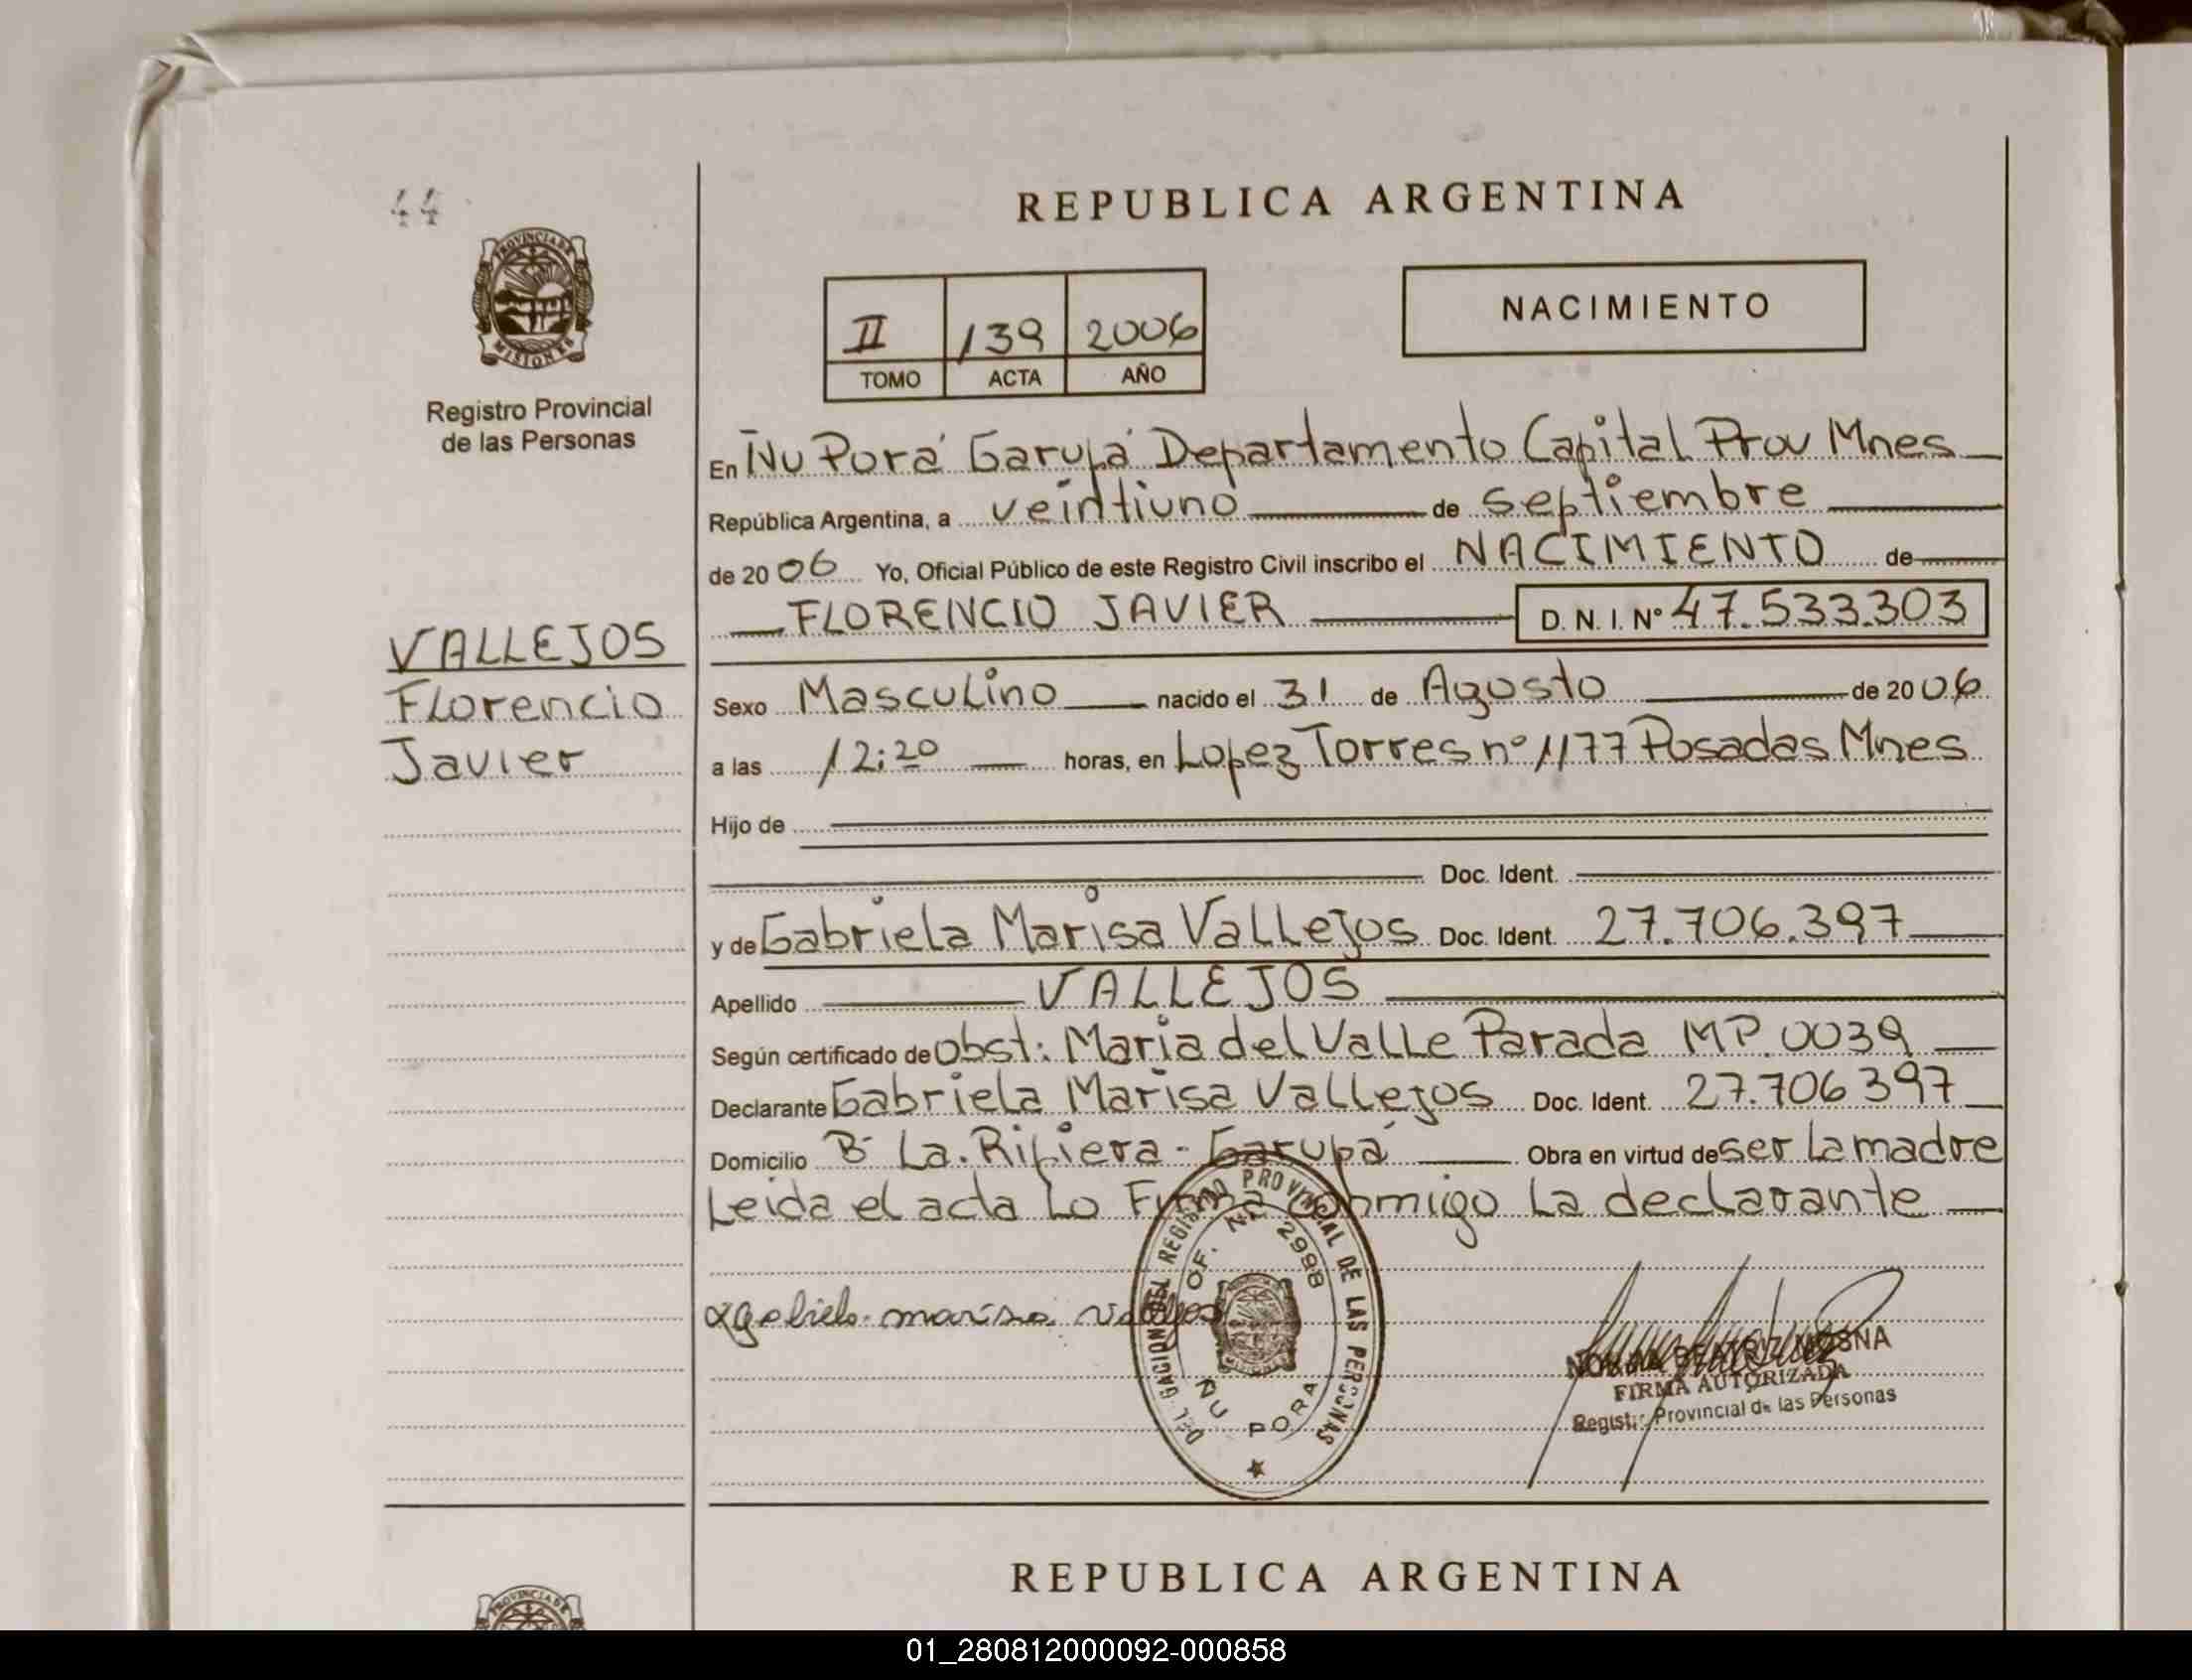 44
PROVINCIA DE
MISIONES
Registro Provincial
de las Personas
REPUBLICA ARGENTINA
II 139 2006
TOMO ACTA AÑO
NACIMIENTO
En Ñu Porá Garupá Departamento Capital Prov Mnes
República Argentina, a veintiuno de septiembre
de 2006 Yo, Oficial Público de este Registro Civil inscribo el NACIMIENTO de
FLORENCIO JAVIER D. N. I. Nº 47.533.303
VALLEJOS
Florencio
Javier
Sexo Masculino nacido el 31 de Agosto de 2006
a las 12:20 horas, en Lopez Torres nº 1177 Posadas Mnes
Hijo de
Doc. Ident.
y de Gabriela Marisa Vallejos Doc. Ident. 27.706.397
Apellido VALLEJOS
Según certificado de obst: Maria del Valle Parada MP. 0039
Declarante Gabriela Marisa Vallejos Doc. Ident. 27.706397
Domicilio Bº La. Rifiera - Garupá Obra en virtud de ser la madre
Leida el acta Lo Firma conmigo La declarante
DEL GACION DEL REGISTRO PROVINCIAL DE LAS PERSONAS
OF. Nº 2998
ÑU PORA
gabriela marisa vallejos
FIRMA AUTORIZADA
Registro Provincial de las Personas
REPUBLICA ARGENTINA
PROVINCIA DE
01_280812000092-000858